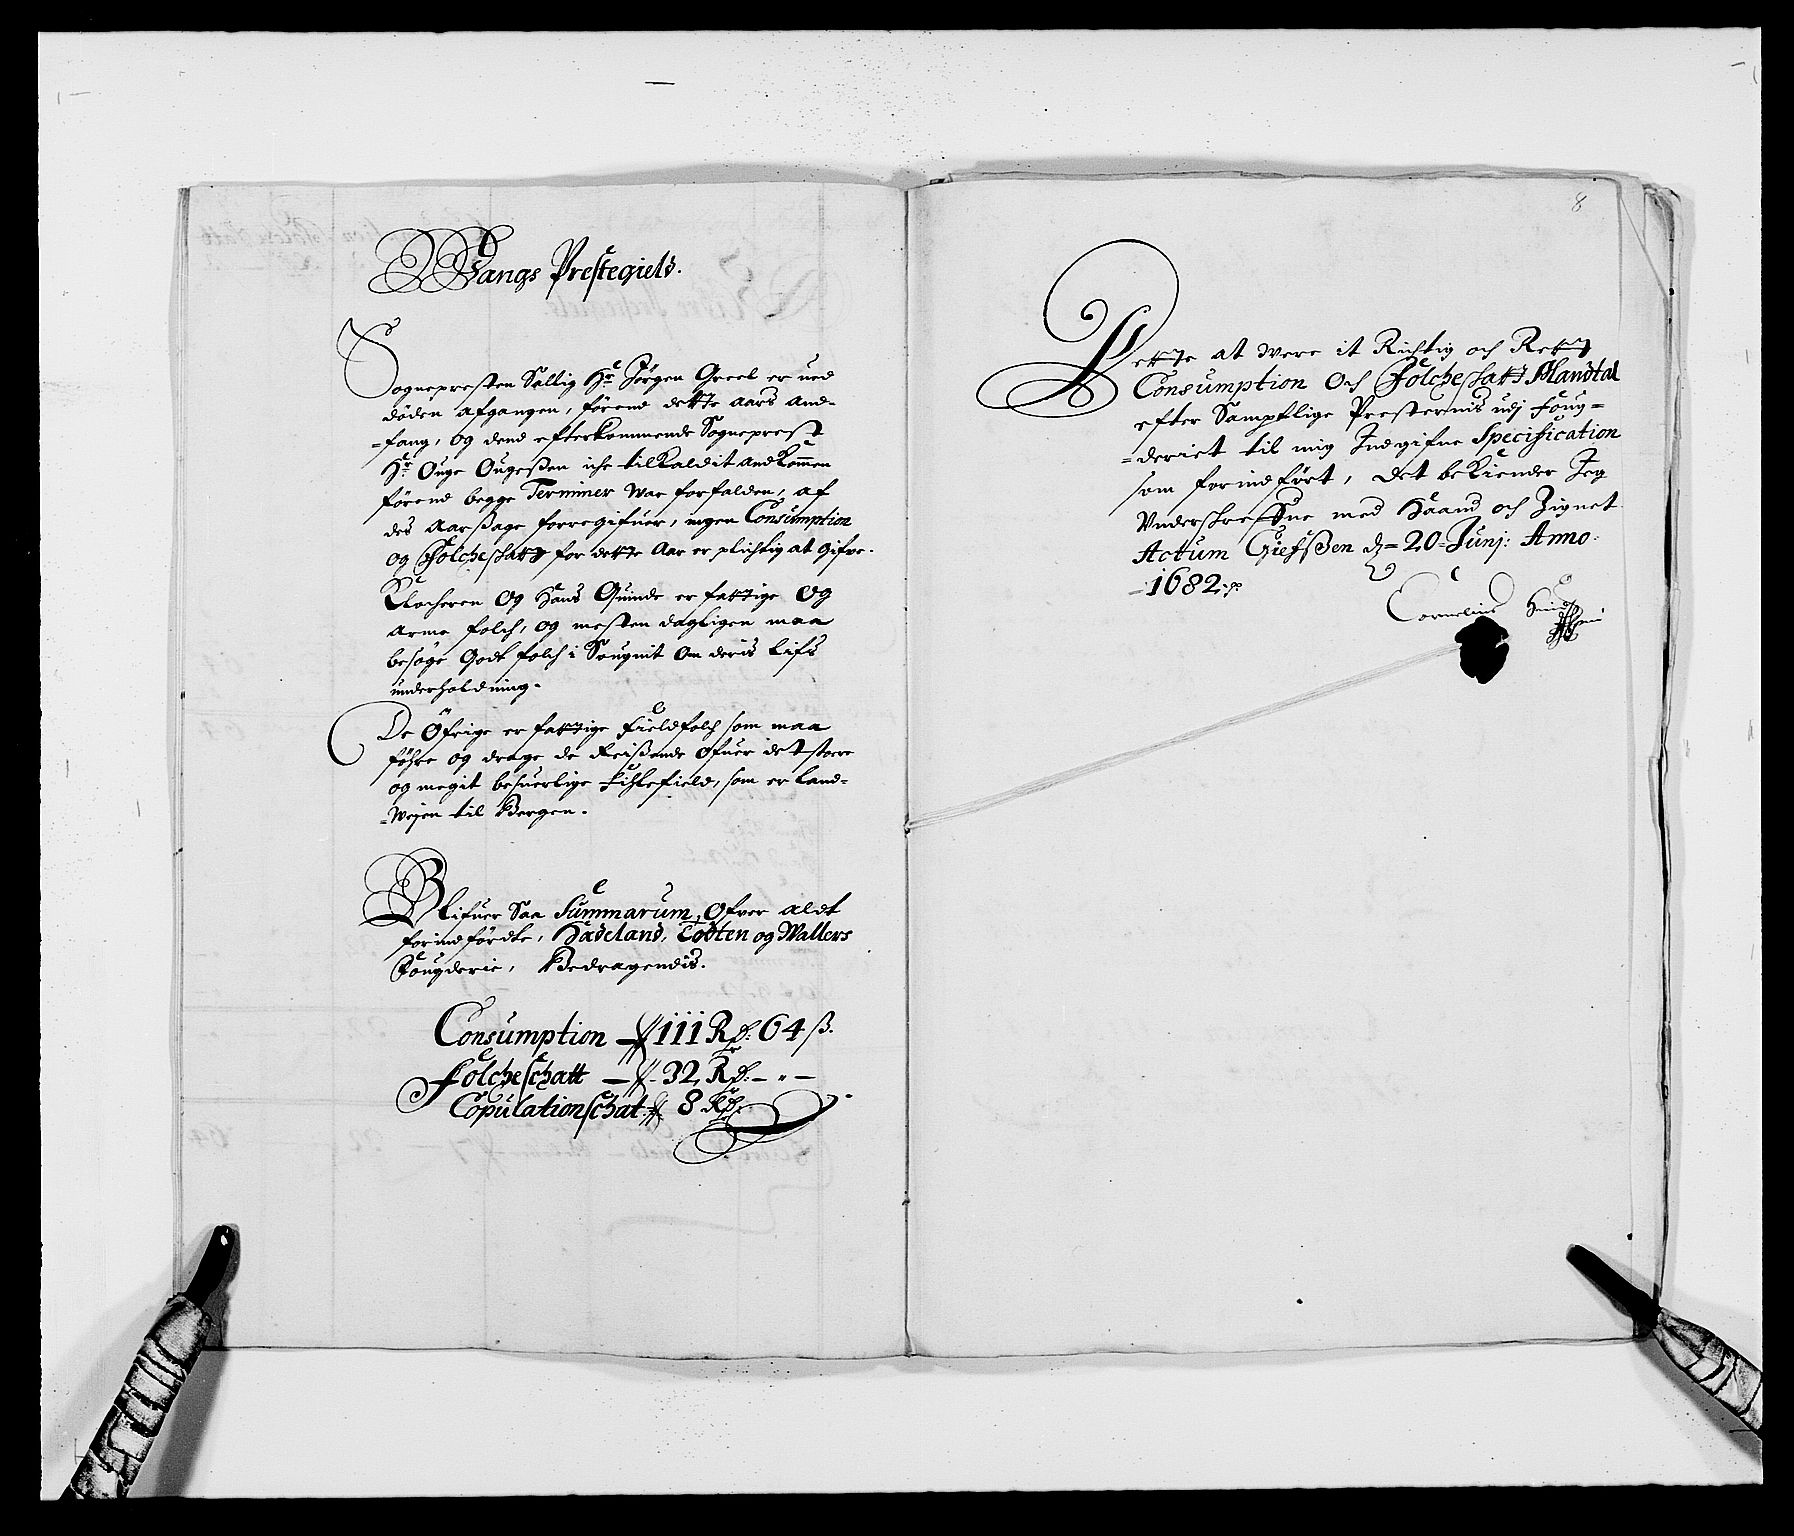 Wangs Prestegield.
Sognepresten Sallig Hr Jørgen Greel er ved
døden afgangen, førend dette aars And-
=fang, og dend efterkommende Sogneprest
Hr Ouge Ougeßen iche tilkaldit and kommen
førend begge Terminer war forfalden, af
des Aarßage forregifuer, ingen Consumption
og Folcheschatt for dette Aar er plichtig at gifve.
Klocheren Og hans Quinde er fattige Og
Arme folch, og mesten dagligen maa
besøge Godt folch i Sougnit Om deris Lifs
underholdning.
De Øfrige er fattige Fieldfolch som maa
føhre og drage de Reißende Ofuer det store
og megit besuerlige Filefield, som er Land=
=Wejen til Bergen.
Blifuer Saa Summarum, Ofver aldt
forindførdte, Hadeland, Todten og Wallers
Fougderie, Bedragendis.
Consumption — 111 Rd: 64 ß.
Folcheschatt — 32 Rd: — " —
Copulationschat 8 Rd:
8
Dette at were it Richtig och Rett
Consumption Och Folcheschatt Mandtal
efter Samptlige Presternis udj Foug=
=deriet til mig Indgifne Specification
som forindført, Det bekiender Jeg
Underskrefne med Haand och Zignet
Actum Giefßen d= 20 Junj: Anno:
=1682:
Cornelius